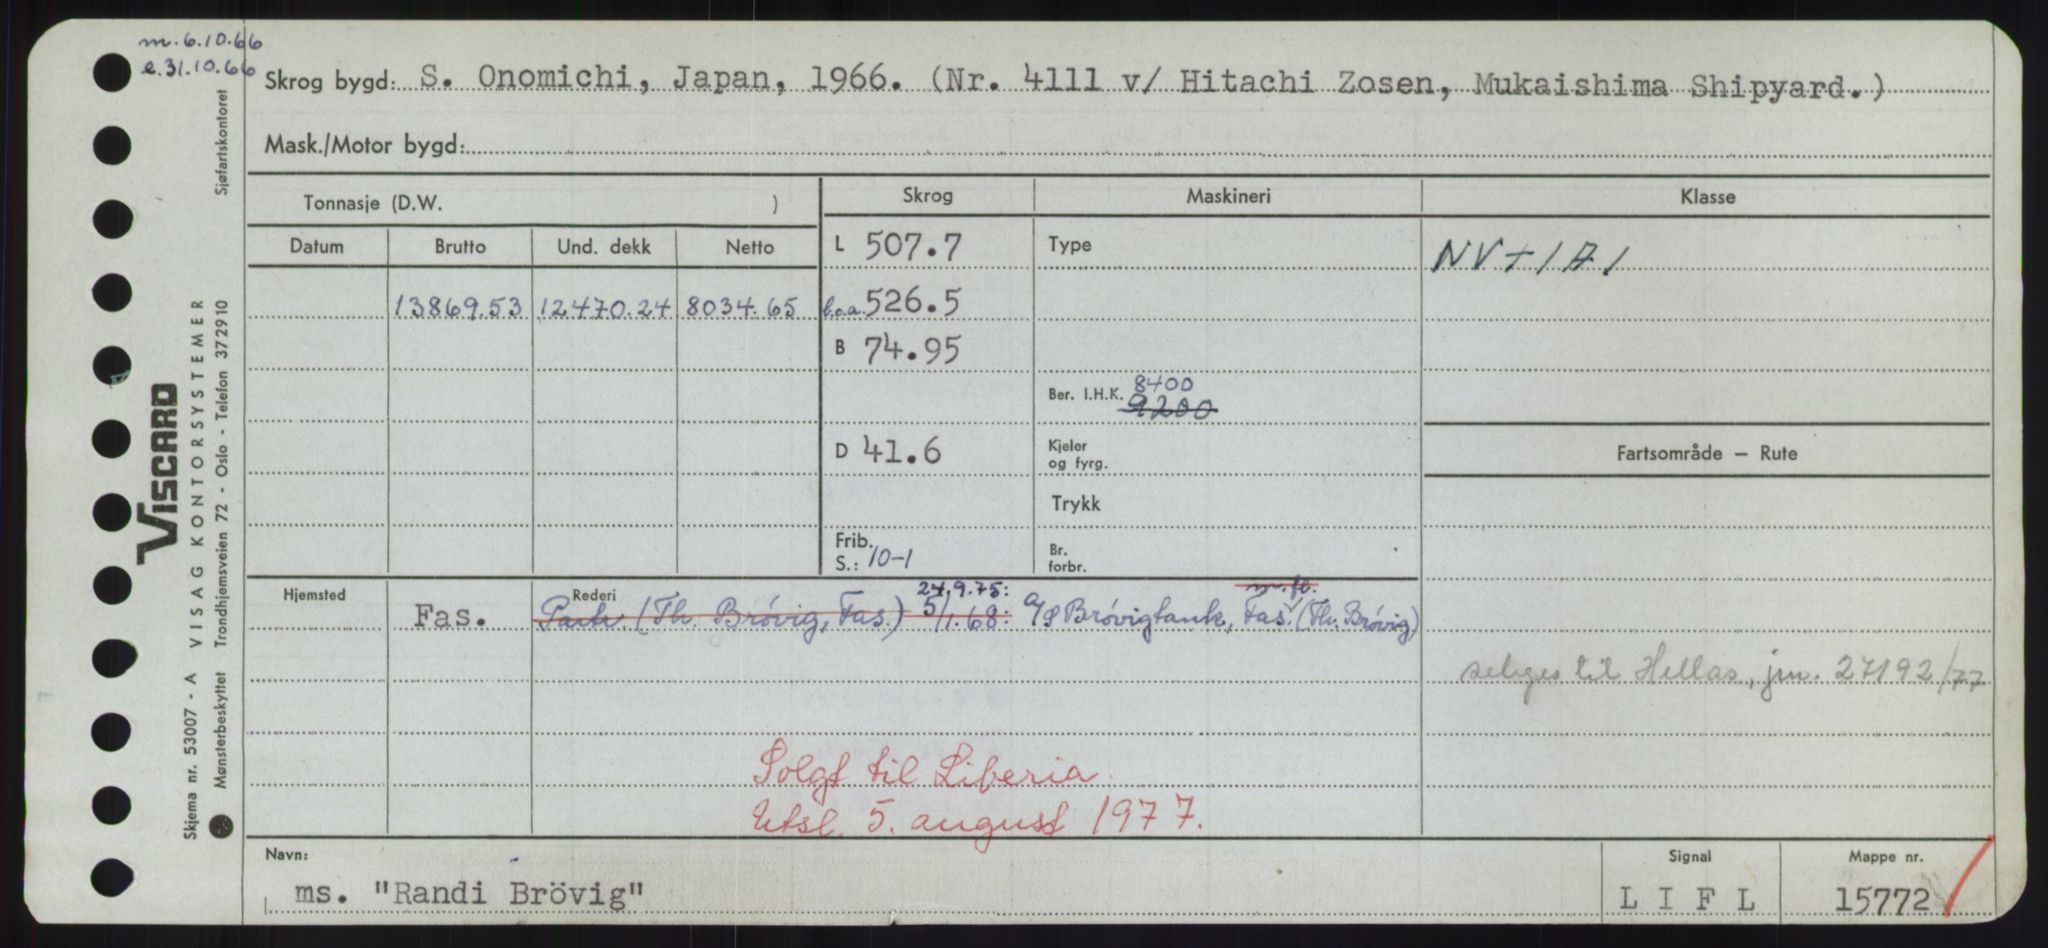 m. 6.10.66
e. 31.10.66
Skrog bygd: S. Onomichi, Japan, 1966. (Nr. 4111 v/ Hitachi Zosen, Mukaishima Shipyard.)
Mask./Motor bygd:
Tonnasje (D.W. )
Skrog Maskineri Klasse
Datum Brutto Und. dekk Netto
L 507.7 Type NV + 1 A 1
13869.53 12470.24 8034.65 l.o.a. 526.5
B 74.95
8400
Ber. I.H.K. 9200
D 41.6 Kjeler og fyrg.
Fartsområde – Rute
Trykk
Frib. S.: 10-1 Br. forbr.
Hjemsted Rederi 24.9.75: m. fl.
Fas. Partr. (Th. Brövig, Fas.) 5/1.68: A/S Brövigtank, Fas. (Th. Brövig)
selges til Hellas, jm. 27192/77
Solgt til Liberia.
Utsl. 5. august 1977.
Navn: Signal Mappe nr.
ms. "Randi Brövig" L I F L 15772
VISCARD
Skjema nr. 53007 - A VISAG KONTORSYSTEMER
Mønsterbeskyttet Trondhjemsveien 72 - Oslo - Telefon 372910 Sjøfartskontoret